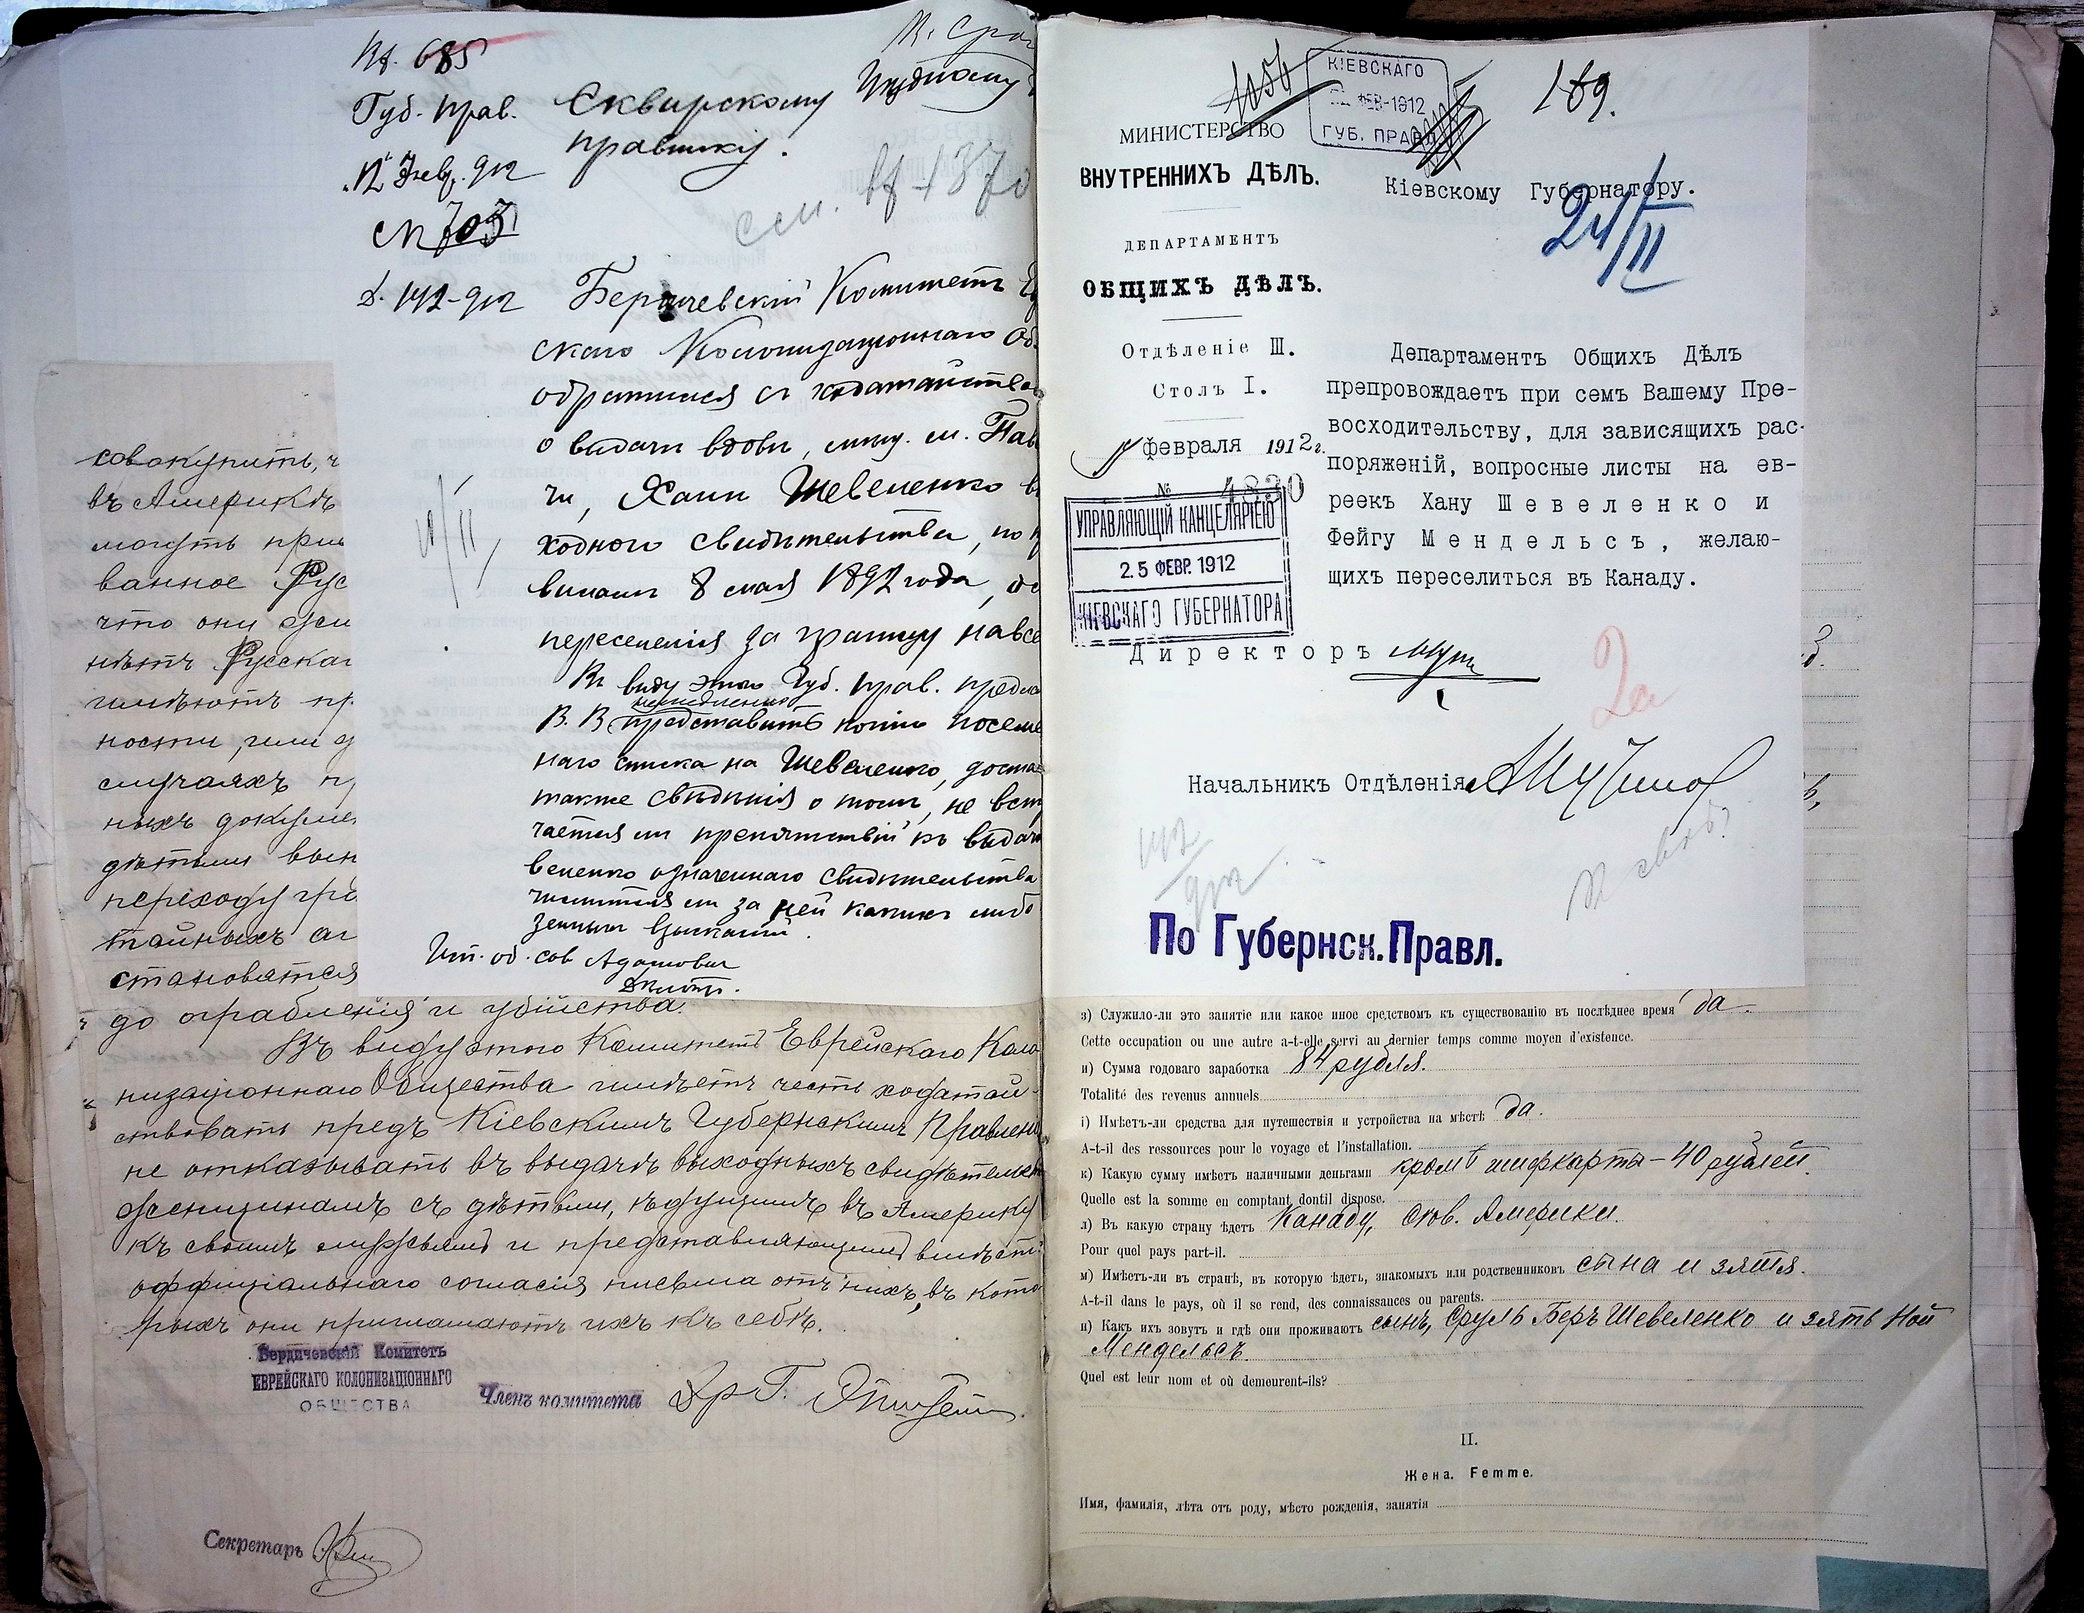 №. 685
Губ. Прав.
12 Февр. 912
№ 703
Д. 142-912
Сквирскому
правнику.
см. № 1370
Бердичевскій Комитетъ
скаго Колонизаціоннаго Об
обратился съ ходатайство
о выдачи вдовѣ, мѣщ. м. Пав
чи, Ханѣ Шевеленко в
ходного свидѣтельства, по
виламъ 8 мая 1892 года,
переселенія за границу навсе
Въ виду этого Губ. Прав. предла
немедленно
В. В. представить копію посеме
наго списка на Шевеленко, доста
также свѣдѣнія о томъ, не вст
чается ли препятствій къ выдачѣ
веленко означеннаго свидѣтельства
числится ли за ней какихъ либо
взысканій.
сов Адамович
совокупить, ч
въ Америкѣ
могутъ при
ванное Рус
что они
нѣтъ Русска
имѣютъ пр
ности, или
случаяхъ
ныхъ докуме
дѣтьми вын
переходу гра
тайныхъ аг
становятся
до ограбленія и убійства.
Въ виду этого Комитетъ Еврейскаго Коло
низаціоннаго Общества имѣетъ честь ходатай-
ствовать предъ Кіевскимъ Губернскимъ Правлені
не отказывать въ выдачѣ выходныхъ свидѣтельст
женщинамъ съ дѣтьми, ѣдущимъ въ Америку
къ своимъ мужьямъ и представляющимъ вмѣсто
оффиціальнаго согласія письма отъ нихъ, въ кото
рыхъ они приглашаютъ ихъ къ себѣ.
Бердичевскій Комитетъ
ЕВРЕЙСКАГО КОЛОНИЗАЦІОННАГО
ОБЩЕСТВА
Членъ комитета
Секретарь
КІЕВСКАГО
ФЕВ-1912
ГУБ. ПРАВЛ
189.
МИНИСТЕРСТВО
ВНУТРЕННИХЪ ДѢЛЪ.
ДЕПАРТАМЕНТЪ
ОБЩИХЪ ДѢЛЪ.
Отдѣленіе III.
Столъ I.
Февраля 1912 г.
№ 4830
УПРАВЛЯЮЩІЙ КАНЦЕЛЯРІЕЮ
25 ФЕВР. 1912
КІЕВСКАГО ГУБЕРНАТОРА
Кіевскому Губернатору.
24/II
Департаментъ Общихъ Дѣлъ
препровождаетъ при семъ Вашему Пре-
восходительству, для зависящихъ рас-
поряженій, вопросные листы на ев-
реекъ Хану Шевеленко и
Фейгу Мендельсъ, желаю-
щихъ переселиться въ Канаду.
Директоръ
2а
Начальникъ Отдѣленія
142
912
По Губернск.Правл.
з) Служило-ли это занятіе или какое иное средствомъ къ существованію въ послѣднее время да.
Cette occupation ou une autre a-t-elle servi au dernier temps comme moyen d'existence.
и) Сумма годоваго заработка 84 рубля.
Totalité des revenus annuels
і) Имѣетъ-ли средства для путешествія и устройства на мѣстѣ да.
A-t-il des ressources pour le voyage et l'installation.
к) Какую сумму имѣетъ наличными деньгами кромѣ шифкарты - 40 рублей.
Quelle est la somme en comptant dontil dispose.
л) Въ какую страну ѣдетъ Канаду, Сѣв. Америки.
Pour quel pays part-il.
м) Имѣетъ-ли въ странѣ, въ которую ѣдетъ, знакомыхъ или родственниковъ сына и зятя.
A-t-il dans le pays, où il se rend, des connaissances ou parents.
н) Какъ ихъ зовутъ и гдѣ они проживаютъ сынъ, Сруль Беръ Шевеленко и зять Ной
Мендельсъ.
Quel est leur nom et où demeurent-ils?
II.
Жена. Femme.
Имя, фамилія, лѣта отъ роду, мѣсто рожденія, занятія